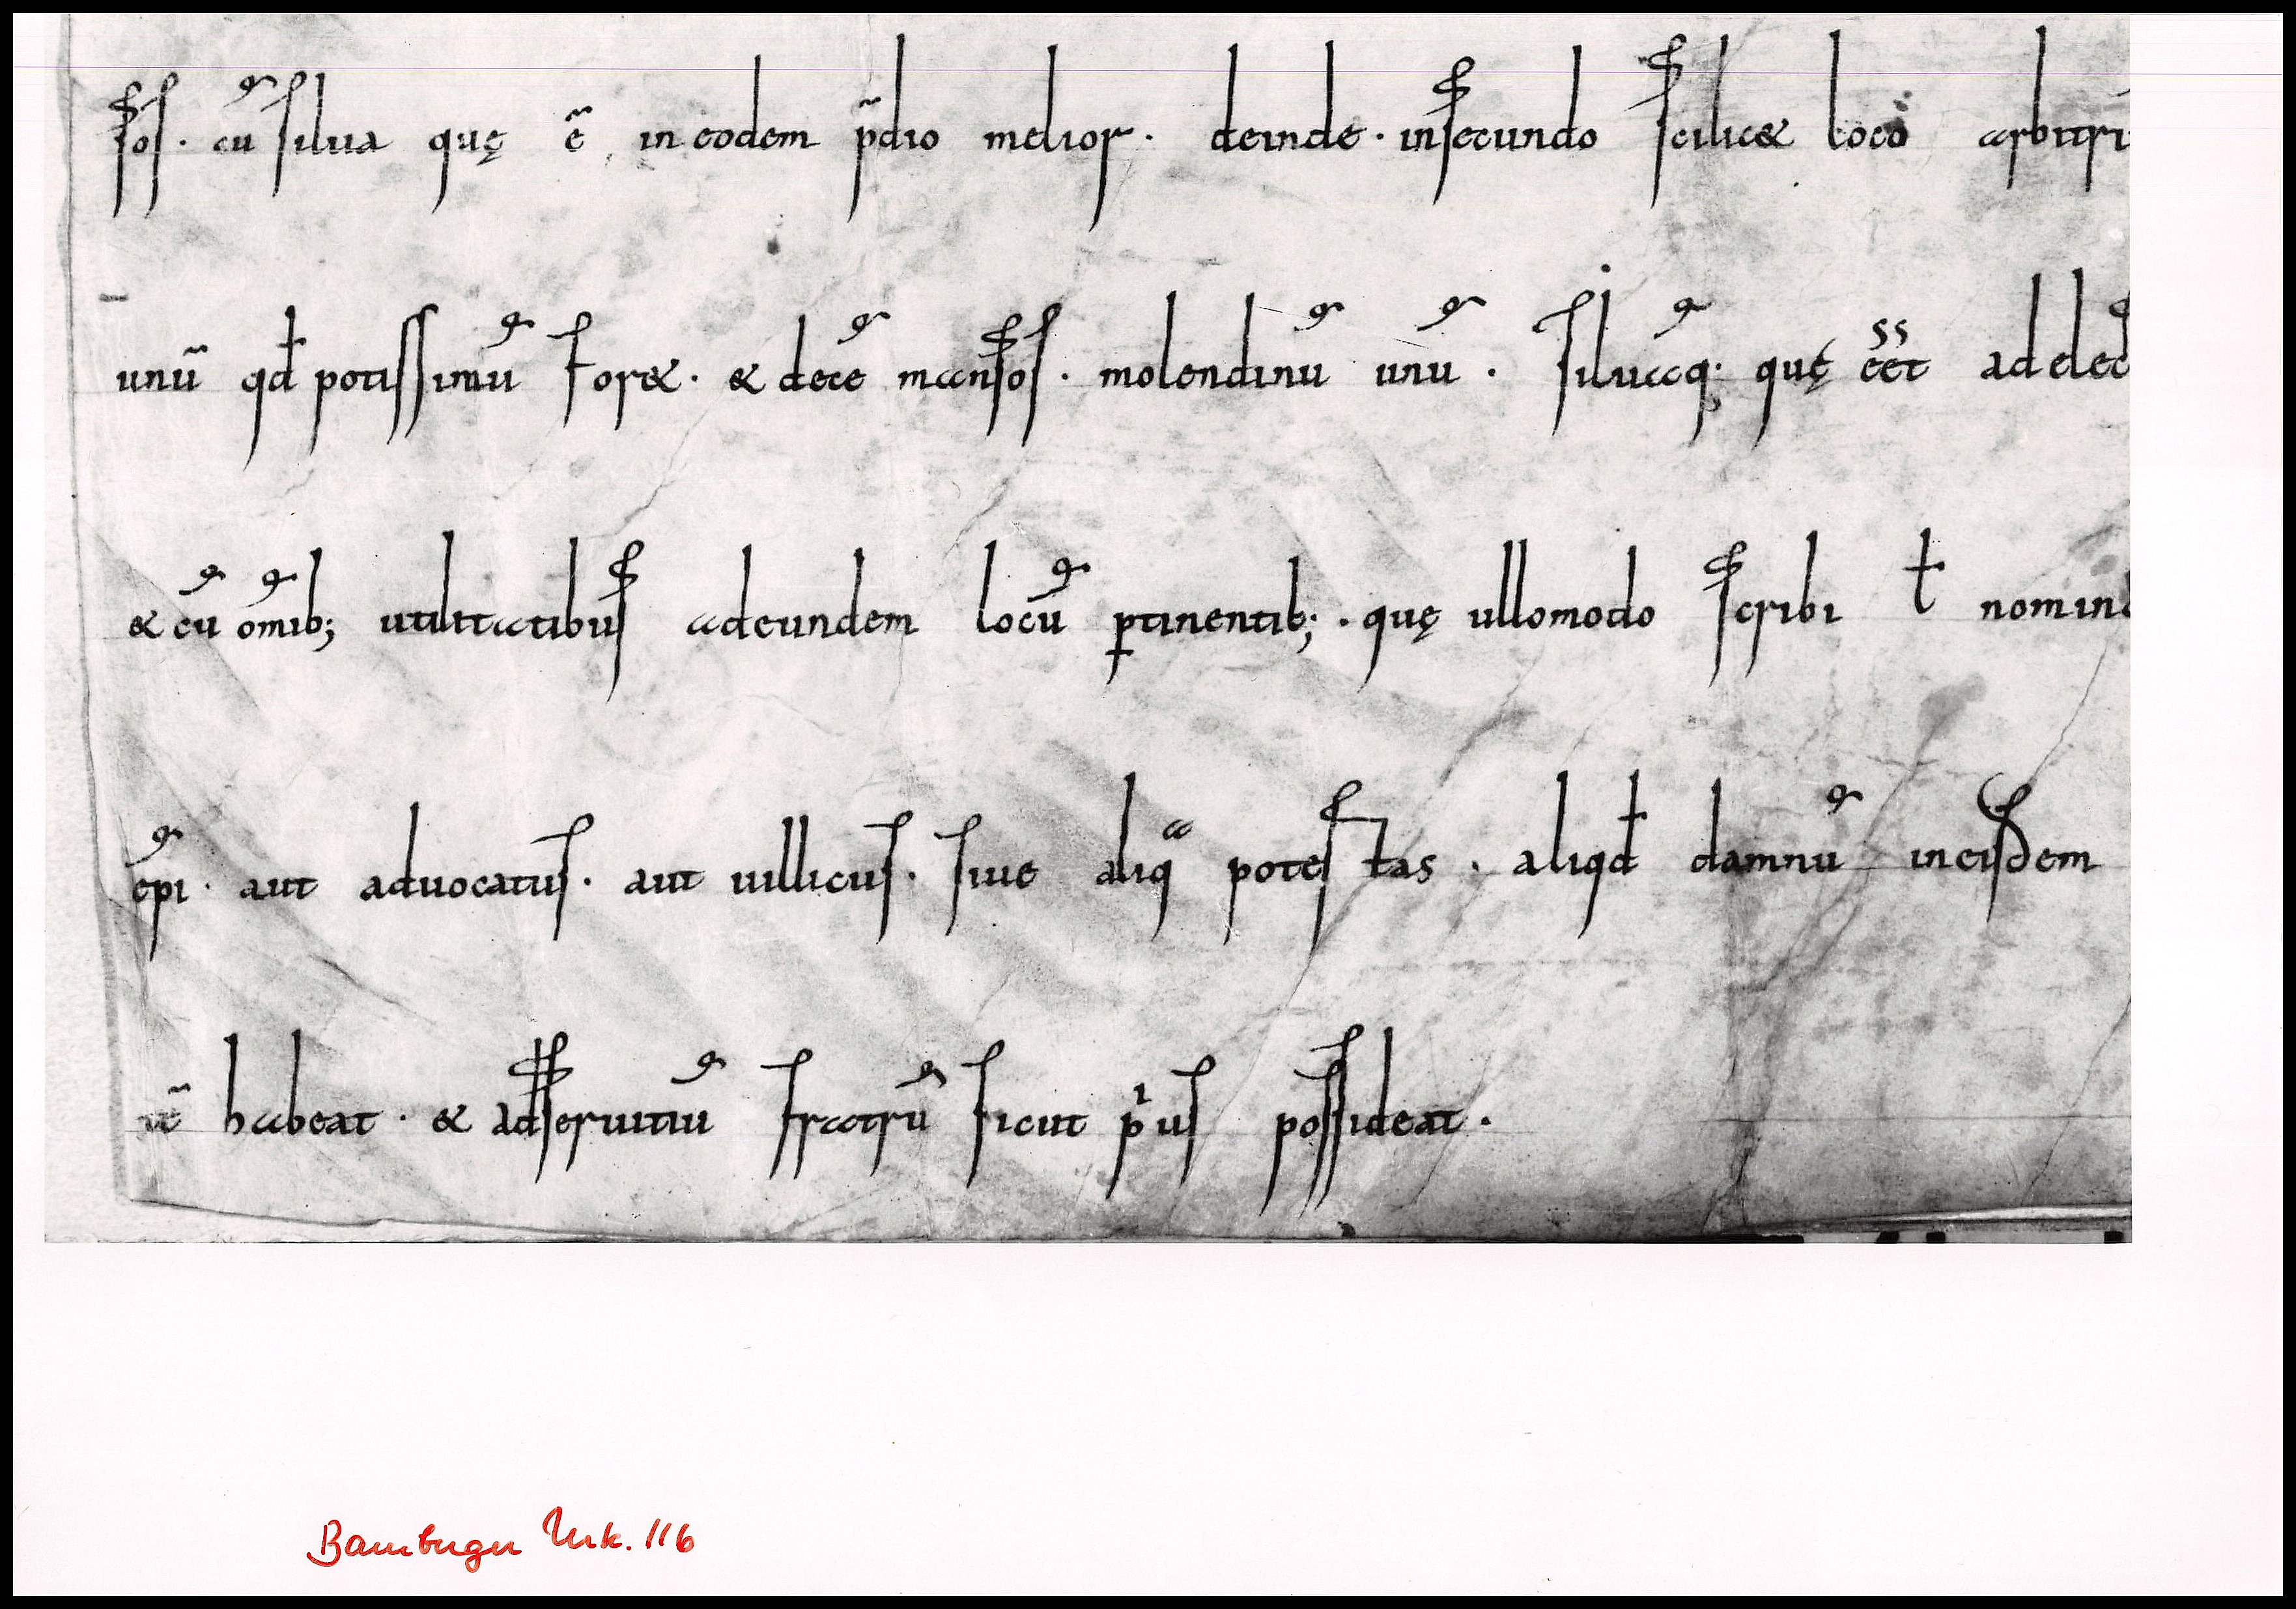 ſoſ · cu᷒ ſilua quę ẽ in eodem p̃dio melior · deinde · inſecundo ſcilic& loco arbitri
unũ qd̄ potiſſimũ for& · & decẽ manſoſ · molendinũ unũ · ſiluaq · quę ẽẽt ad elec
& cũ om̃ib; utilitatibuſ adeundem locũ ꝑtinentib; · quę ullomodo ſcribi ł nomina
ep̃i · aut aduocatuſ · aut uillicuſ · ſiue aliqͣ poteſtas · aliqd̄ damnũ ineiſdem
habeat · & adſeruitiũ fratrũ ſicut pͥuſ poſſideat ·
Bamberger Urk. 116